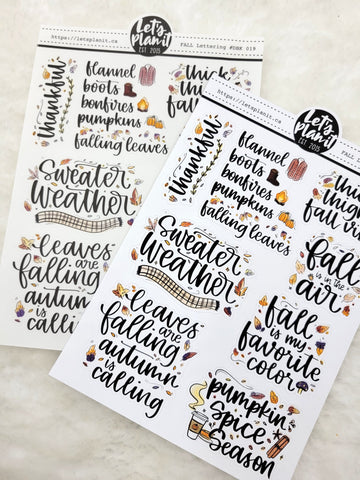 https://letsplanit.ca
Let's
Planit
EST. 2015
FALL Lettering #DBK 019
thankful
flannel
boots
bonfires
pumpkins
falling leaves
thick
thi
fall
Sweater
Weather
leaves
are
falling
autumn
is
calling
https://letsplanit.ca
Let's
Planit
EST 2015
FALL
thankful
flannel
boots
bonfires
pumpkins
falling leaves
fall
Sweater
Weather
fall
is in the
air
leaves
are
falling
autumn
is
calling
fall
is my
favorite
color
pumpkin
Spice
Season